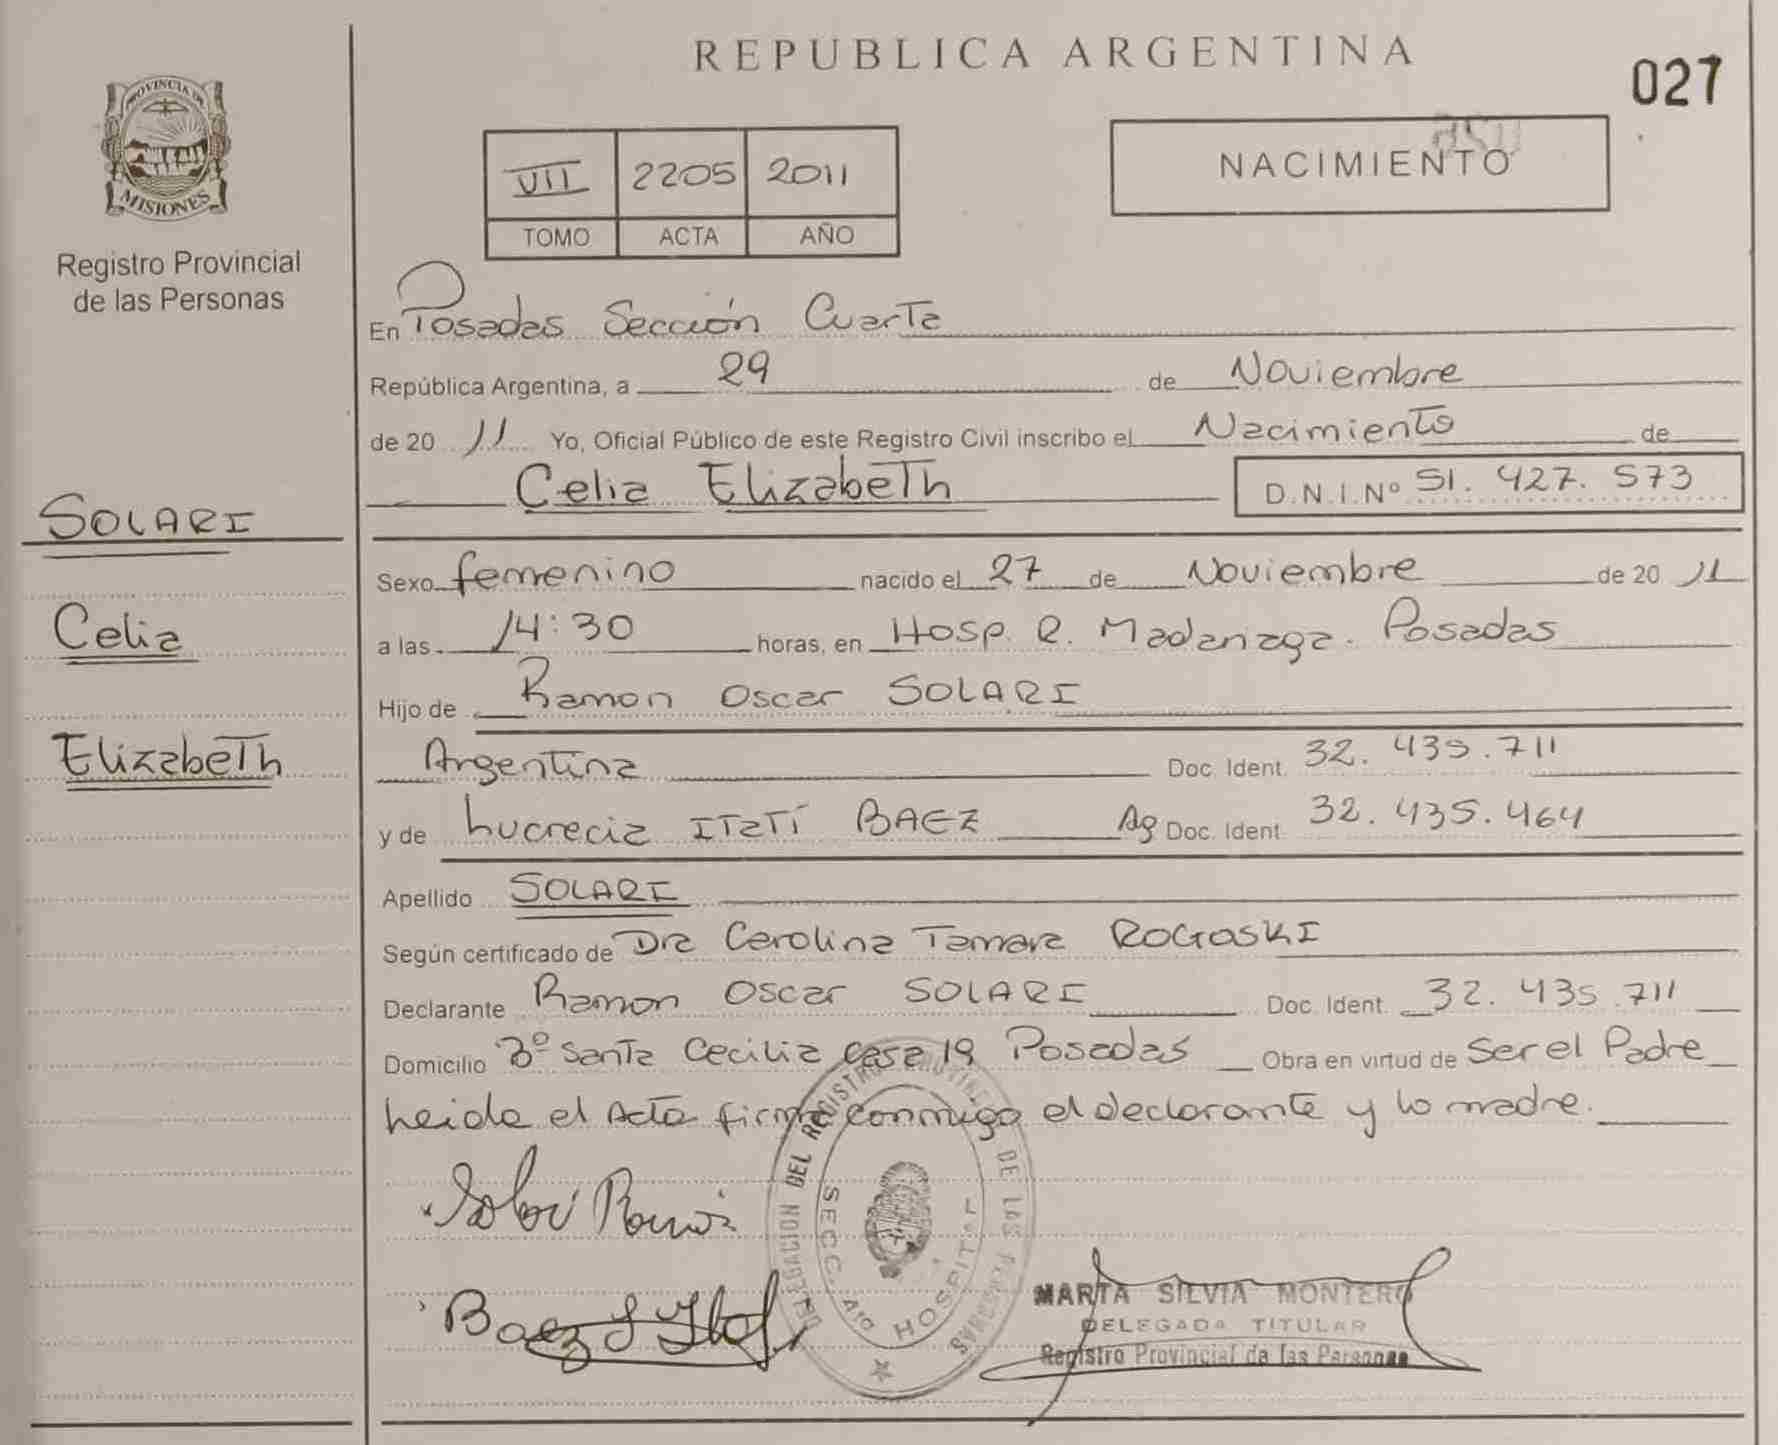 REPUBLICA ARGENTINA
027
PROVINCIA DE
MISIONES
Registro Provincial
de las Personas
VII 2205 2011
TOMO ACTA AÑO
NACIMIENTO
En Posadas Sección Cuarta
República Argentina, a 29 de Noviembre
de 20 11 Yo, Oficial Público de este Registro Civil inscribo el Nacimiento de
Celia Elizabeth D.N.I.Nº 51.427.573
SOLARI
Celia
Elizabeth
Sexo femenino nacido el 27 de Noviembre de 20 11
a las 14:30 horas, en Hosp. R. Madariaga. Posadas
Hijo de Ramon Oscar SOLARI
Argentina Doc. Ident. 32.435.711
y de Lucrecia ITatí BAEZ Ag Doc. Ident. 32.435.464
Apellido SOLARI
Según certificado de Dra Carolina Tamara ROGOSKI
Declarante Ramon Oscar SOLARI Doc. Ident. 32.435.711
Domicilio Bº Santa Cecilia Casa 19 Posadas Obra en virtud de Ser el Padre
Leida el Acta firma conmigo el declarante y la madre.
DELEGACION DEL REGISTRO PROVINCIAL DE LAS PERSONAS
SECC. 4ta HOSPITAL
Baez
MARTA SILVIA MONTERO
DELEGADA TITULAR
Registro Provincial de las Personas